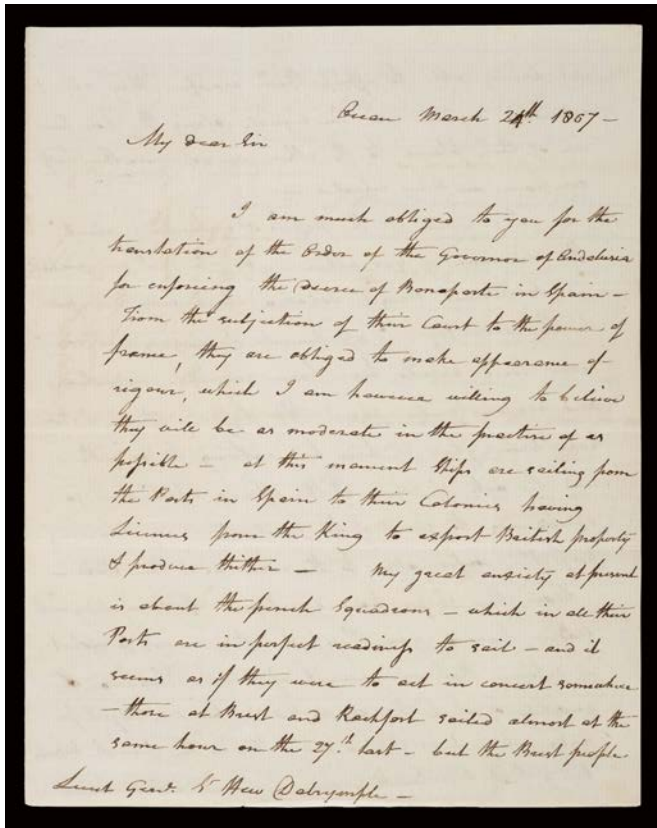 Ocean March 24th. 1807 —
My dear Sir
I am much obliged to you for the
translation of the Order of the Governor of Andalusia
for enforcing the Decree of Bonaparte in Spain —
From the subjection of their Court to the power of
france, they are obliged to make appearance of
rigour, which I am however willing to believe
they will be as moderate in the practice of as
possible — at this moment Ships are sailing from
the Ports in Spain to their Colonies having
Licences from the King to export British property
& produce thither — My great anxiety at present
is about the french Squadrons — which in all their
Ports are in perfect readiness to sail — and it
seems as if they were to act in concert somewhere
— those at Brest and Rochfort sailed almost at the
same hour on the 27th. last — but the Brest people
Lieut Genl. Sr Hew Dalrymple —